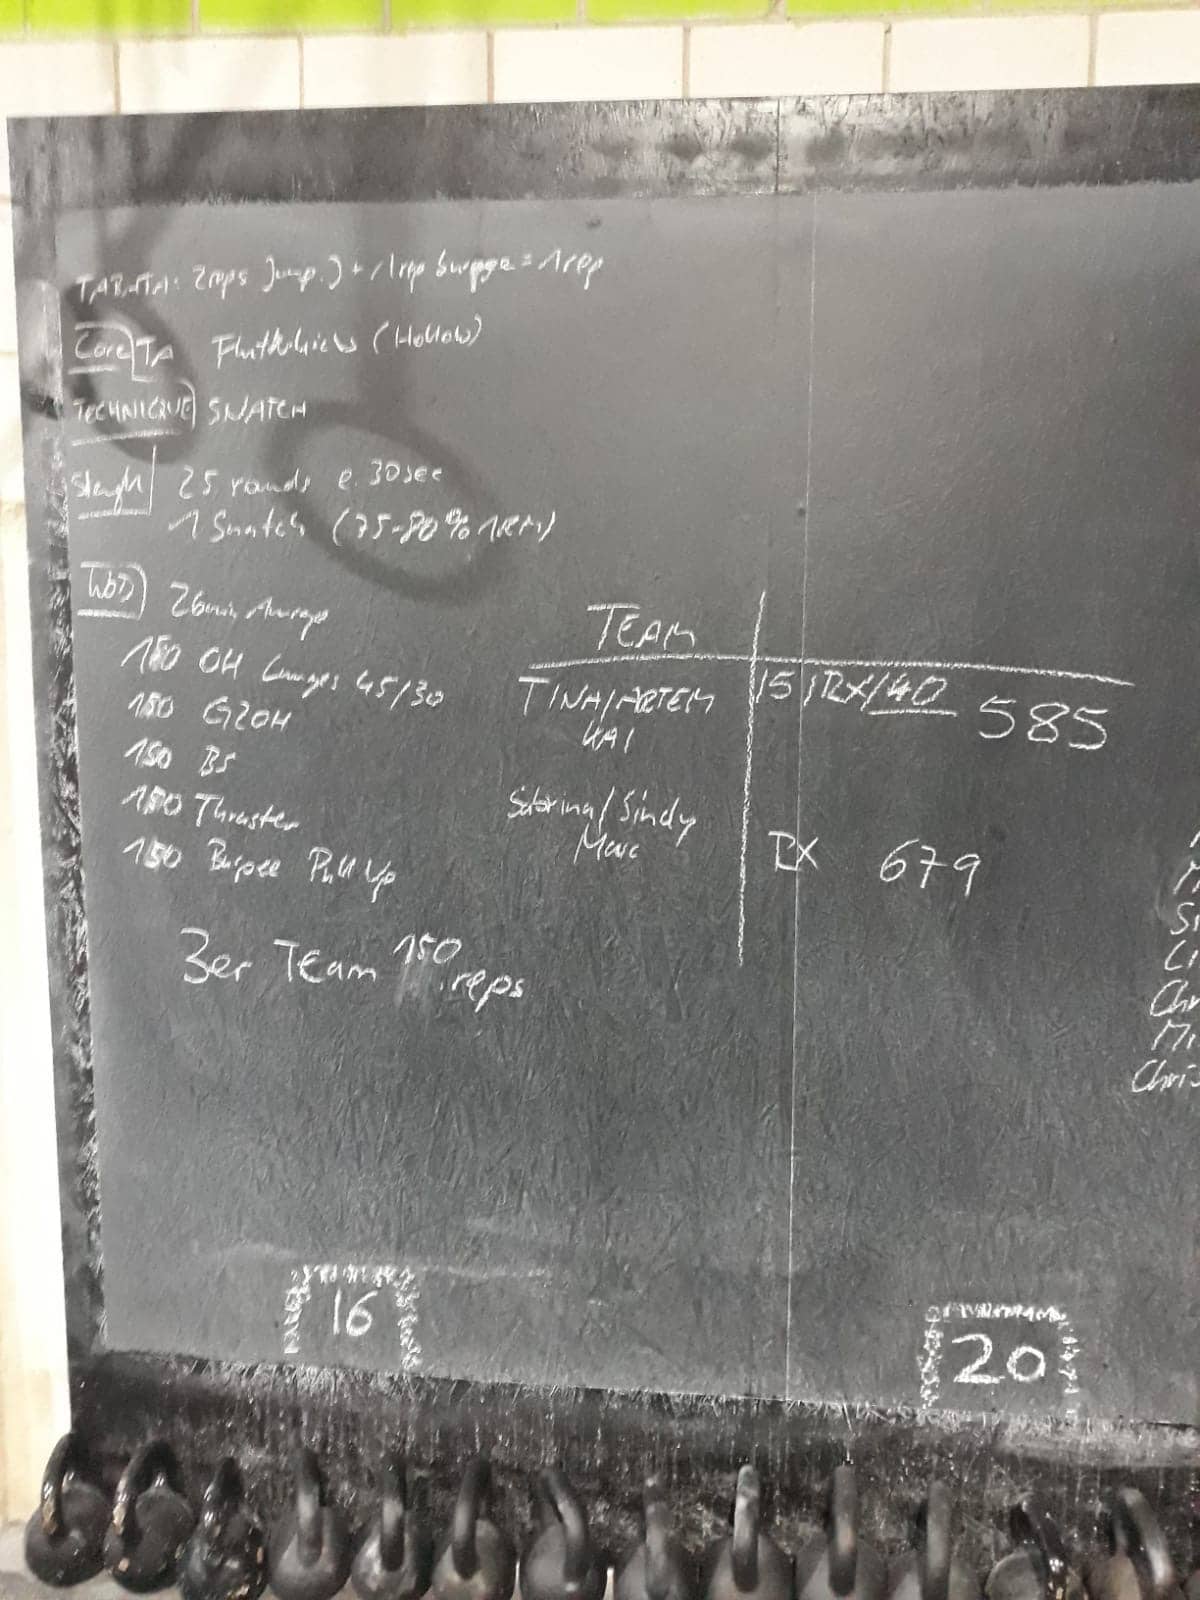 TABATA: 2reps Jump.J + 1rep burpee = 1rep
Core TA Flutterkicks (Hollow)
TECHNIQUE SNATCH
25 rounds e. 30sec
1 Snatch (75-80% 1RM)
WOD 26min Amrap
150 OH Lunges 45/30
150 G2OH
150 BS
150 Thruster
150 Burpee Pull Up
3er Team 150 reps
TEAM
TINA/ARTEM 15 RX/40 585
KAI
Sabrina/Sindy
Marc RX 679
M
Si
Li
Chr
Mi
Chris
16
20